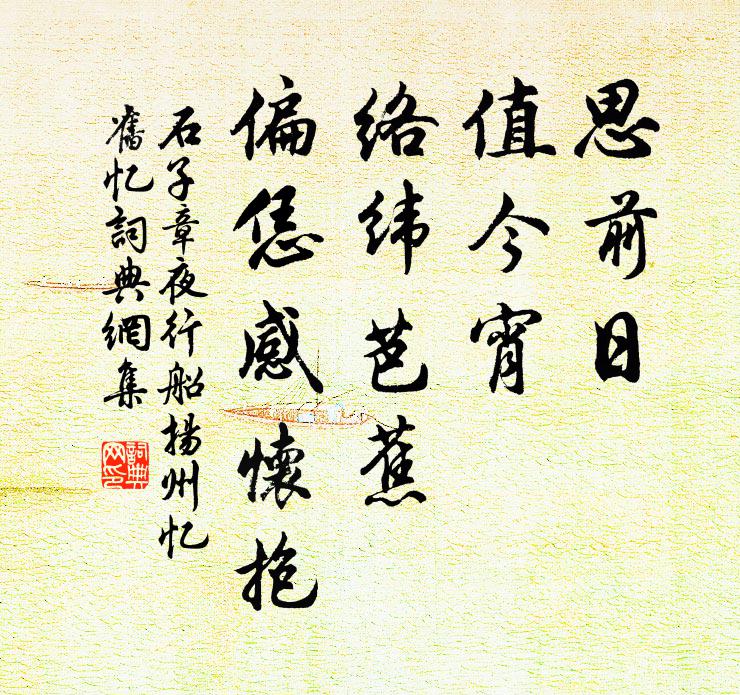 思前日
值今宵
络纬芭蕉
偏恁感懷抱
石子章夜行船揚州忆
舊忆詞典網集
詞典网印